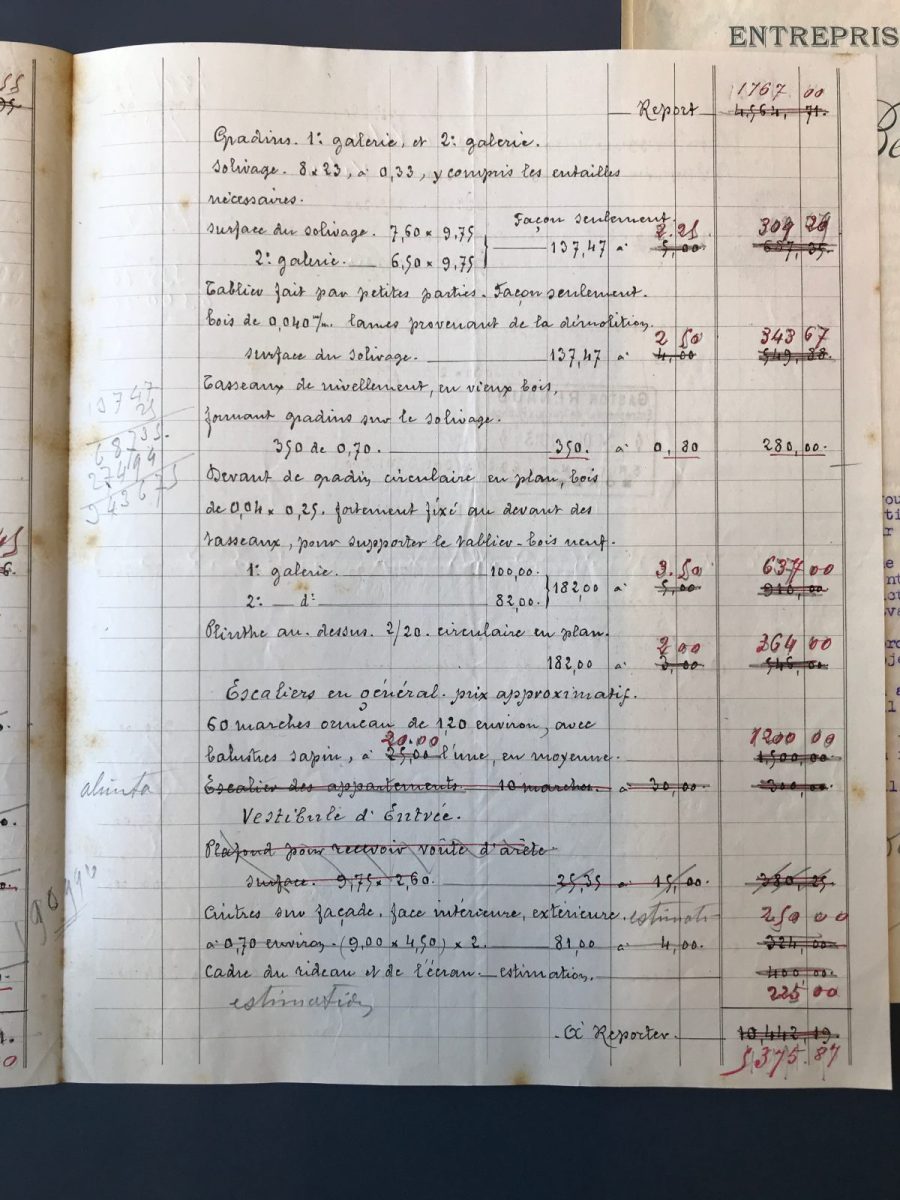 ENTREPRIS
1767 00
Report 4,564, 71.
Gradins. 1e galerie, et 2e galerie.
Solivage. 8 x 23, à 0,33, y compris les entailles
nécessaires.
Façon seulement.
surface du solivage. 7,60 x 9,75
2.25 309 29
137,47 à 5,00 687,35
2e galerie. 6,50 x 9,75
Tablier fait par petites parties. Façon seulement.
Bois de 0,040 m/m lames provenant de la démolition.
2 50 343 67
surface du solivage. 137,47 à 4,00 549,88
Tasseaux de nivellement, en vieux bois,
formant gradins sur le solivage.
350 de 0,70. 350. à 0,80 280,00.
Devant de gradin circulaire en plan, bois
de 0,04 x 0,25. fortement fixé au devant des
tasseaux, pour supporter le tablier - bois neuf.
1e galerie. 100,00. 3.50 637 00
182,00 à 5,00 910,00
2e d° 82,00.
Plinthe au dessus. 2/20. circulaire en plan.
2 00 364 00
182,00 à 3,00 546,00
Escaliers en général. prix approximatif.
60 marches ormeau de 1,20 environ, avec
20.00 1200 00
balustres sapin, à 25,00 l'une, en moyenne. 1,500,00
Escalier des appartements. 10 marches. à 30,00. 300,00
Vestibule d'Entrée.
Plafond pour recevoir voûte d'arête
surface. 9,75 x 2,60. 25,35 à 15,00. 380,25
Cintres sur façade, face intérieure, extérieure. 250 00
à 0,70 environ. (9,00 x 4,50) x 2. 81,00 à 4,00. 324,00
Cadre du rideau et de l'écran. estimation. 400 00
225 00
estimation
A Reporter. 10,442,19
5375.87